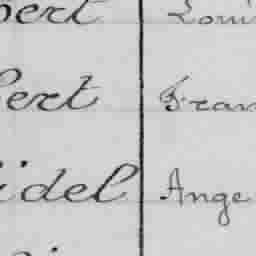 bert Loui
bert Fran
idel Ange